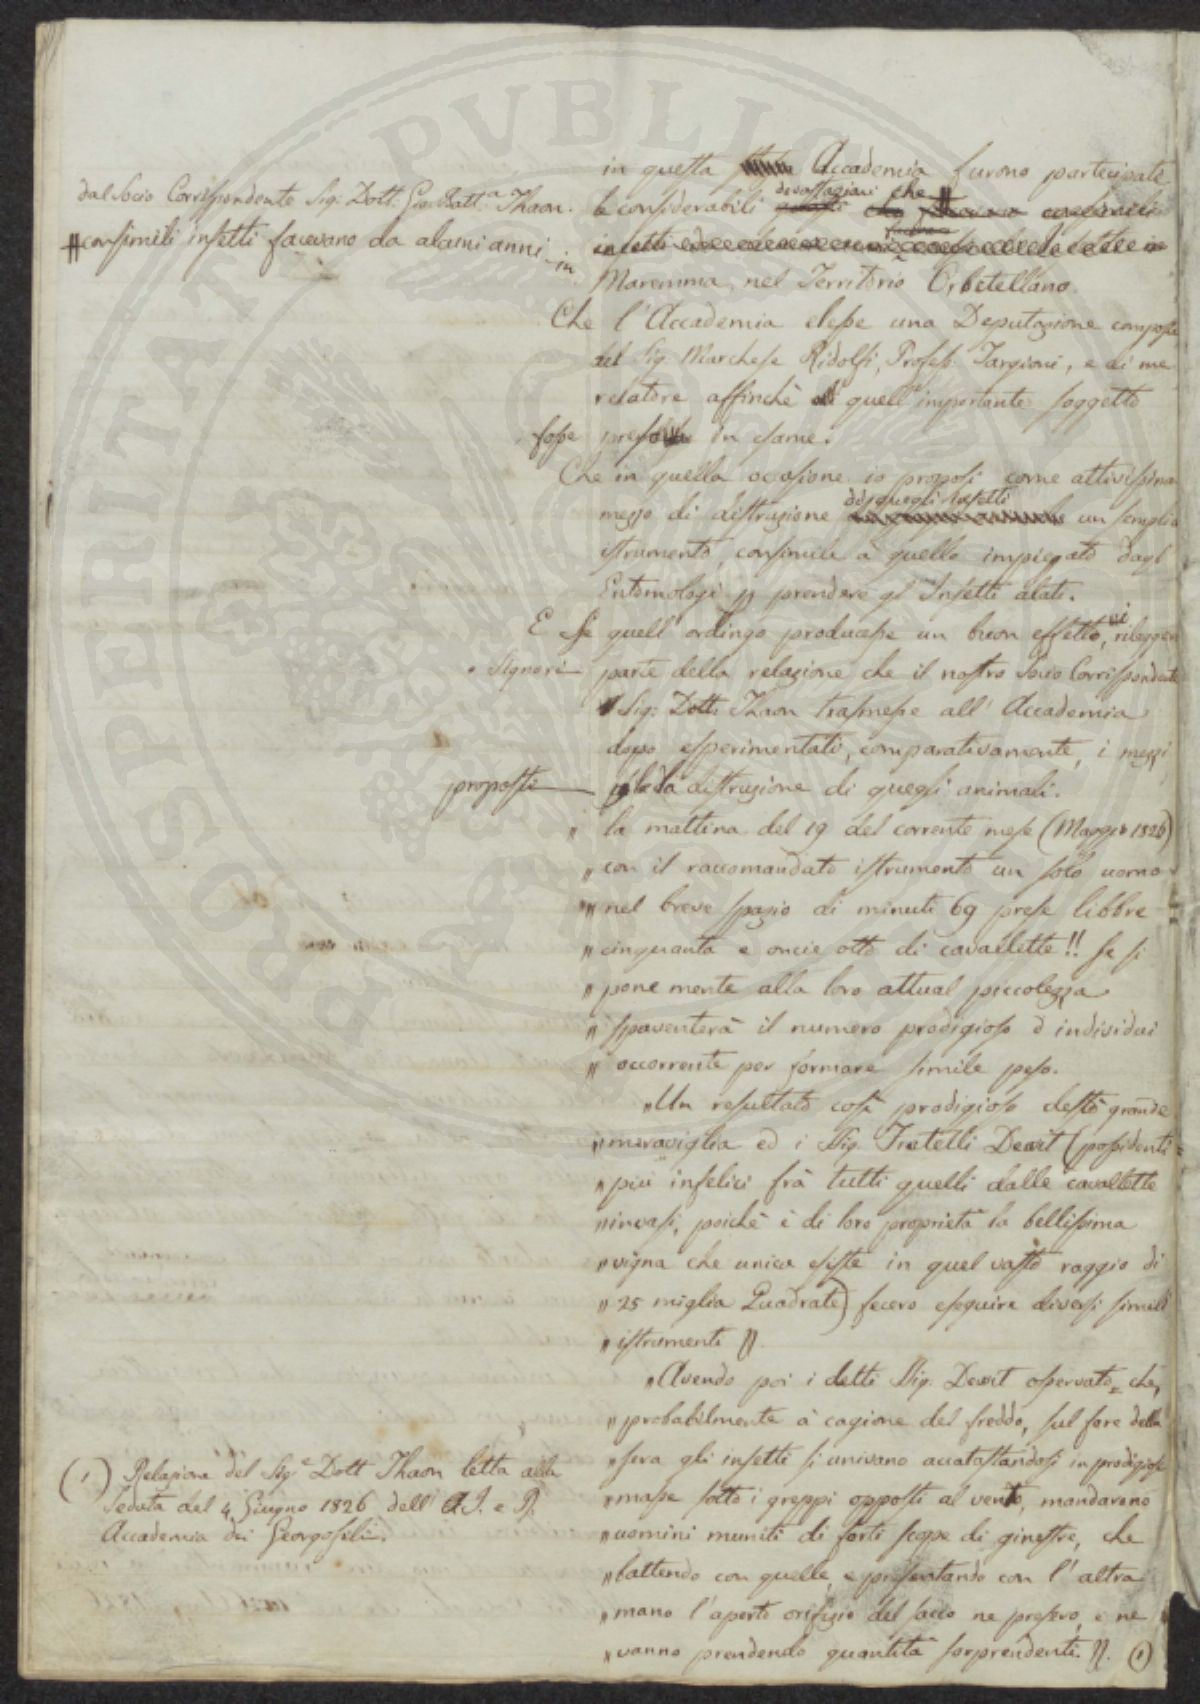 in questa Accademia furono partecipate
dal Socio Corrispondente Sig. Dott. Gio. Batt.a Thaon.
le considerabili devastazioni che #
# consimili insetti facevano da alcuni anni in
Maremma, nel Territorio Orbetellano.
Che l'Accademia elesse una Deputazione composta
del Sig. Marchese Ridolfi, Profess. Targioni, e di me
relatore affinchè quell'importante soggetto
fosse preso in esame.
Che in quella occasione io proposi come attivissimo
mezzo di distruzione di quegli insetti un semplice
istrumento, consimile a quello impiegato dagl'
Entomologi p prendere gl'Insetti alati.
E Se quell'ordingo producesse un buon effetto, vi rileggerò
o Signori parte della relazione che il nostro Socio Corrispondente
Sig: Dott. Thaon trasmesse all'Accademia
dopo esperimentati, comparativamente, i mezzi
proposti p la distruzione di quegli animali.
" la mattina del 19 del corrente mese (Maggio 1826)
" con il raccomandato istrumento un solo uomo
" nel breve spazio di minuti 69 prese libbre
" cinquanta e oncie otto di cavallette!! Se si
" pone mente alla loro attual piccolezza
" spaventerà il numero prodigioso d'individui
" occorrente per formare simile peso.
" Un resultato così prodigioso destò grande
" meraviglia ed i Sig. Fratelli Dewit (possidenti
" più infelici frà tutti quelli dalle cavallette
" invasi, poichè è di loro proprietà la bellissima
" vigna che unica esiste in quel vasto raggio di
" 25 miglia Quadrate) fecero eseguire diversi simili
" istrumenti ".
" Avendo poi i detti Sig. Dewit osservato = che,
" probabilmente à cagione del freddo, sul fare della
" sera gli insetti si univano accatastandosi in prodigiose
" masse sotto i greppi opposti al vento, mandarono
" uomini muniti di forti scope di ginestre, che
" battendo con quelle, e presentando con l'altra
" mano l'aperto orifizio del sacco ne presero, e ne
" vanno prendendo quantità sorprendenti. ". (1)
(1) Relazione del Sig.e Dott Thaon letta alla
Seduta del 4 Giugno 1826 dell'A.I. e R.
Accademia dei Georgofili.